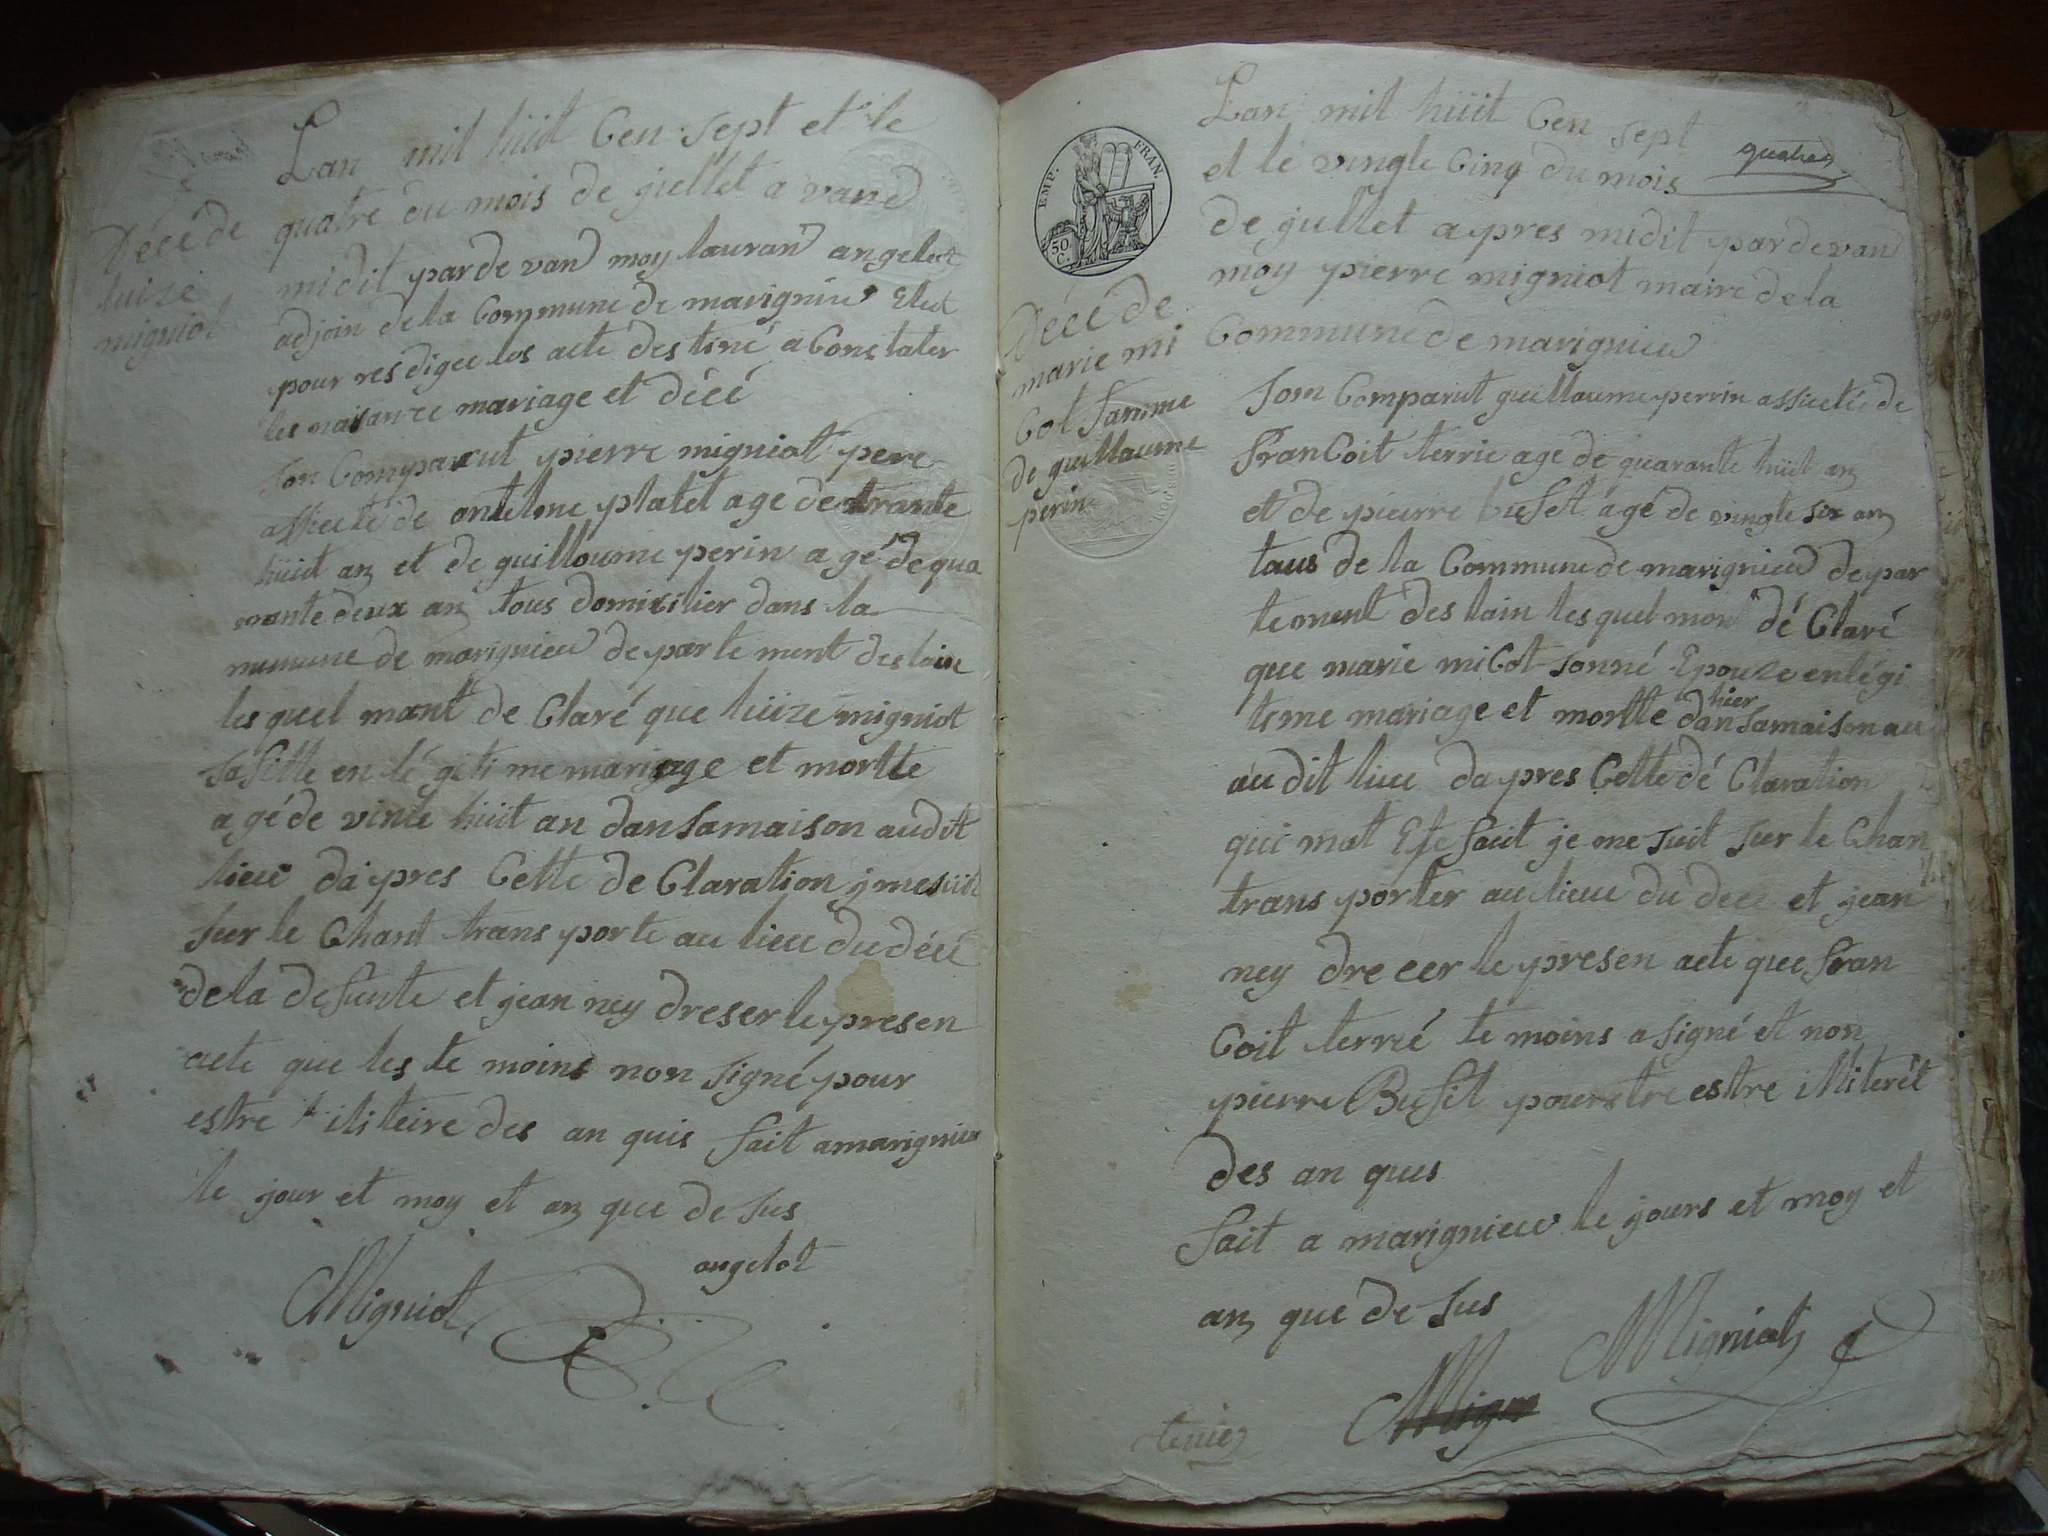 Lan mil hüit Cen sept et le
quatre du mois de jiellet a vand
midit par de van moy lauran angelot
adjoin de la Commune de marignieu Elut
pour resdigee les acte des tiné a Constater
les naisance mariage et décé
son Comparut pierre migniot pere
assiceté de antelme platet age de trante
hüit an et de guilloume perin a gé de qua
rante deux an tous domicilier dans la
mumune de marignieu departe ment des lain
les quel mont de Claré que lüize migniot
sa fille en lé geti me mariage et mortte
a gé de vinte hüit an dan sa maison au dit
lieu da pres Cette de Claration je me suit
sur le Chant trans porte au lieu du décé
de la defunte et jean ney dreser le presen
acte que les te moins non signé pour
estre iliteire des an quis fait a marignieu
le jour et moy et an que de sus
angelot
Migniot
Décé de
luize
migniot
EMP. FRAN.
50 C.
quatre
Lan mil hüit Cen sept
et le vingle Cinq du mois
de jullet apres midit par de van
moy pierre migniot maire de la
Commune de marignieu
som Comparut guillaume perrin assicté de
franCoit terrie age de quarante hüit an
et de pierre bufet agé de vingle six an
taus de la Commune de marignieu depar
tement des lain les quel mon dé Claré
que marie miCol sonné Epouze en légi
time mariage et mortte hier dan sa maison au
au dit lieu da pres Cette dé Claration
qui mat Ete fait je me suit sur le Chan
trans porter au lieu du dece et jean
ney dre cer le presen acte que fran
Coit terrié te moins a signé et non
pierre Bufet pour etre estre illiterêt
des an ques
fait a marignieu le jours et moy et
an que de sus
Migniot
Mign
terrier
Décé de
marie mi
Col famme
de guillaume
perin